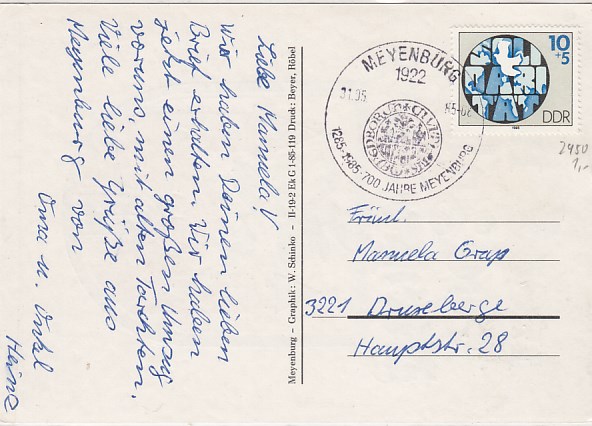 Liebe Manuela!
Wir haben Deinen lieben
Brief erhalten. Wir haben
jetzt einen großen Umzug
vor uns, mit alten Trachten.
Viele liebe Grüße aus
Meyenburg von
Oma u. Onkel
Heinz
Meyenburg – Graphik: W. Schinko – II-19-2 Ek G 1-85-119 Druck: Beyer, Röbel
MEYENBURG
1922
31.05
85-08
1285-1985-700 JAHRE MEYENBURG
10
+5
DDR
1985
2950
1,-
Fräul.
Manuela Grap
3221 Druxberge
Hauptstr. 28